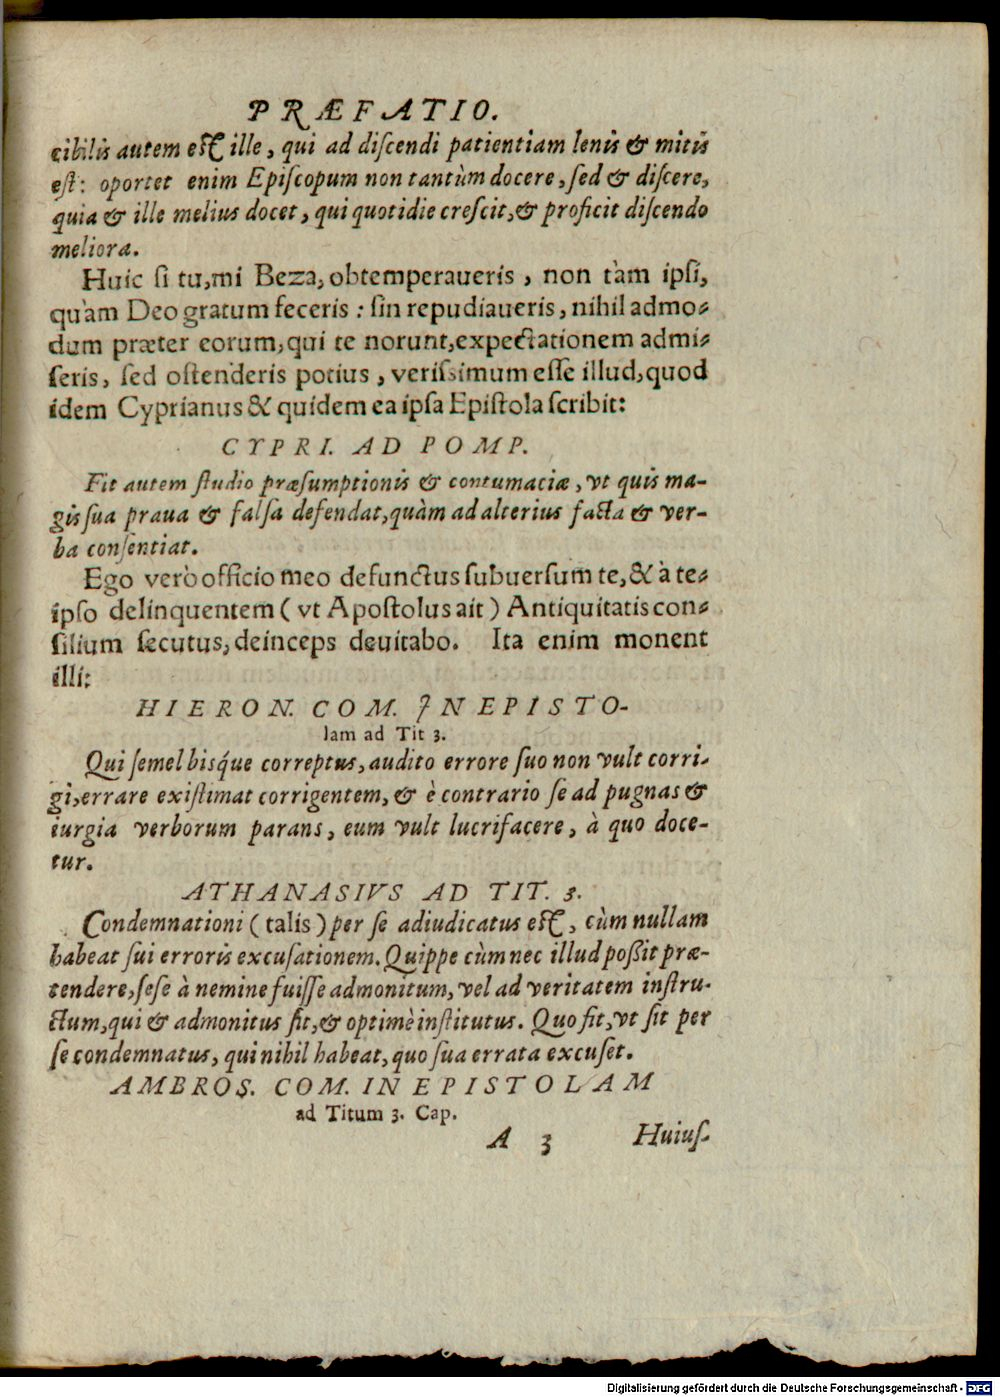 PRÆFATIO.
cibilis autem est ille, qui ad discendi patientiam lenis & mitis
est: oportet enim Episcopum non tantùm docere, sed & discere,
quia & ille melius docet, qui quotidie crescit, & proficit discendo
meliora.
Huic si tu, mi Beza, obtemperaueris, non tàm ipsi,
quàm Deo gratum feceris: sin repudiaueris, nihil admo-
dum præter eorum, qui te norunt, expectationem admi-
seris, sed ostenderis potius, verissimum esse illud, quod
idem Cyprianus & quidem ea ipsa Epistola scribit:
CYPRI. AD POMP.
Fit autem studio præsumptionis & contumaciæ, vt quis ma-
gis sua praua & falsa defendat, quàm ad alterius facta & ver-
ba consentiat.
Ego verò officio meo defunctus subuersum te, & à te-
ipso delinquentem (vt Apostolus ait) Antiquitatis con-
silium secutus, deinceps deuitabo. Ita enim monent
illi:
HIERON. COM. IN EPISTO-
lam ad Tit 3.
Qui semel bisq́ue correptus, audito errore suo non vult corri-
gi, errare existimat corrigentem, & è contrario se ad pugnas &
iurgia verborum parans, eum vult lucrifacere, à quo doce-
tur.
ATHANASIVS AD TIT. 3.
Condemnationi (talis) per se adiudicatus est, cùm nullam
habeat sui erroris excusationem. Quippe cùm nec illud possit præ-
tendere, sese à nemine fuisse admonitum, vel ad veritatem instru-
ctum, qui & admonitus sit, & optimè institutus. Quo fit, vt sit per
se condemnatus, qui nihil habeat, quo sua errata excuset.
AMBROS. COM. IN EPISTOLAM
ad Titum 3. Cap.
A 3 Huius-
Digitalisierung gefördert durch die Deutsche Forschungsgemeinschaft - DFG